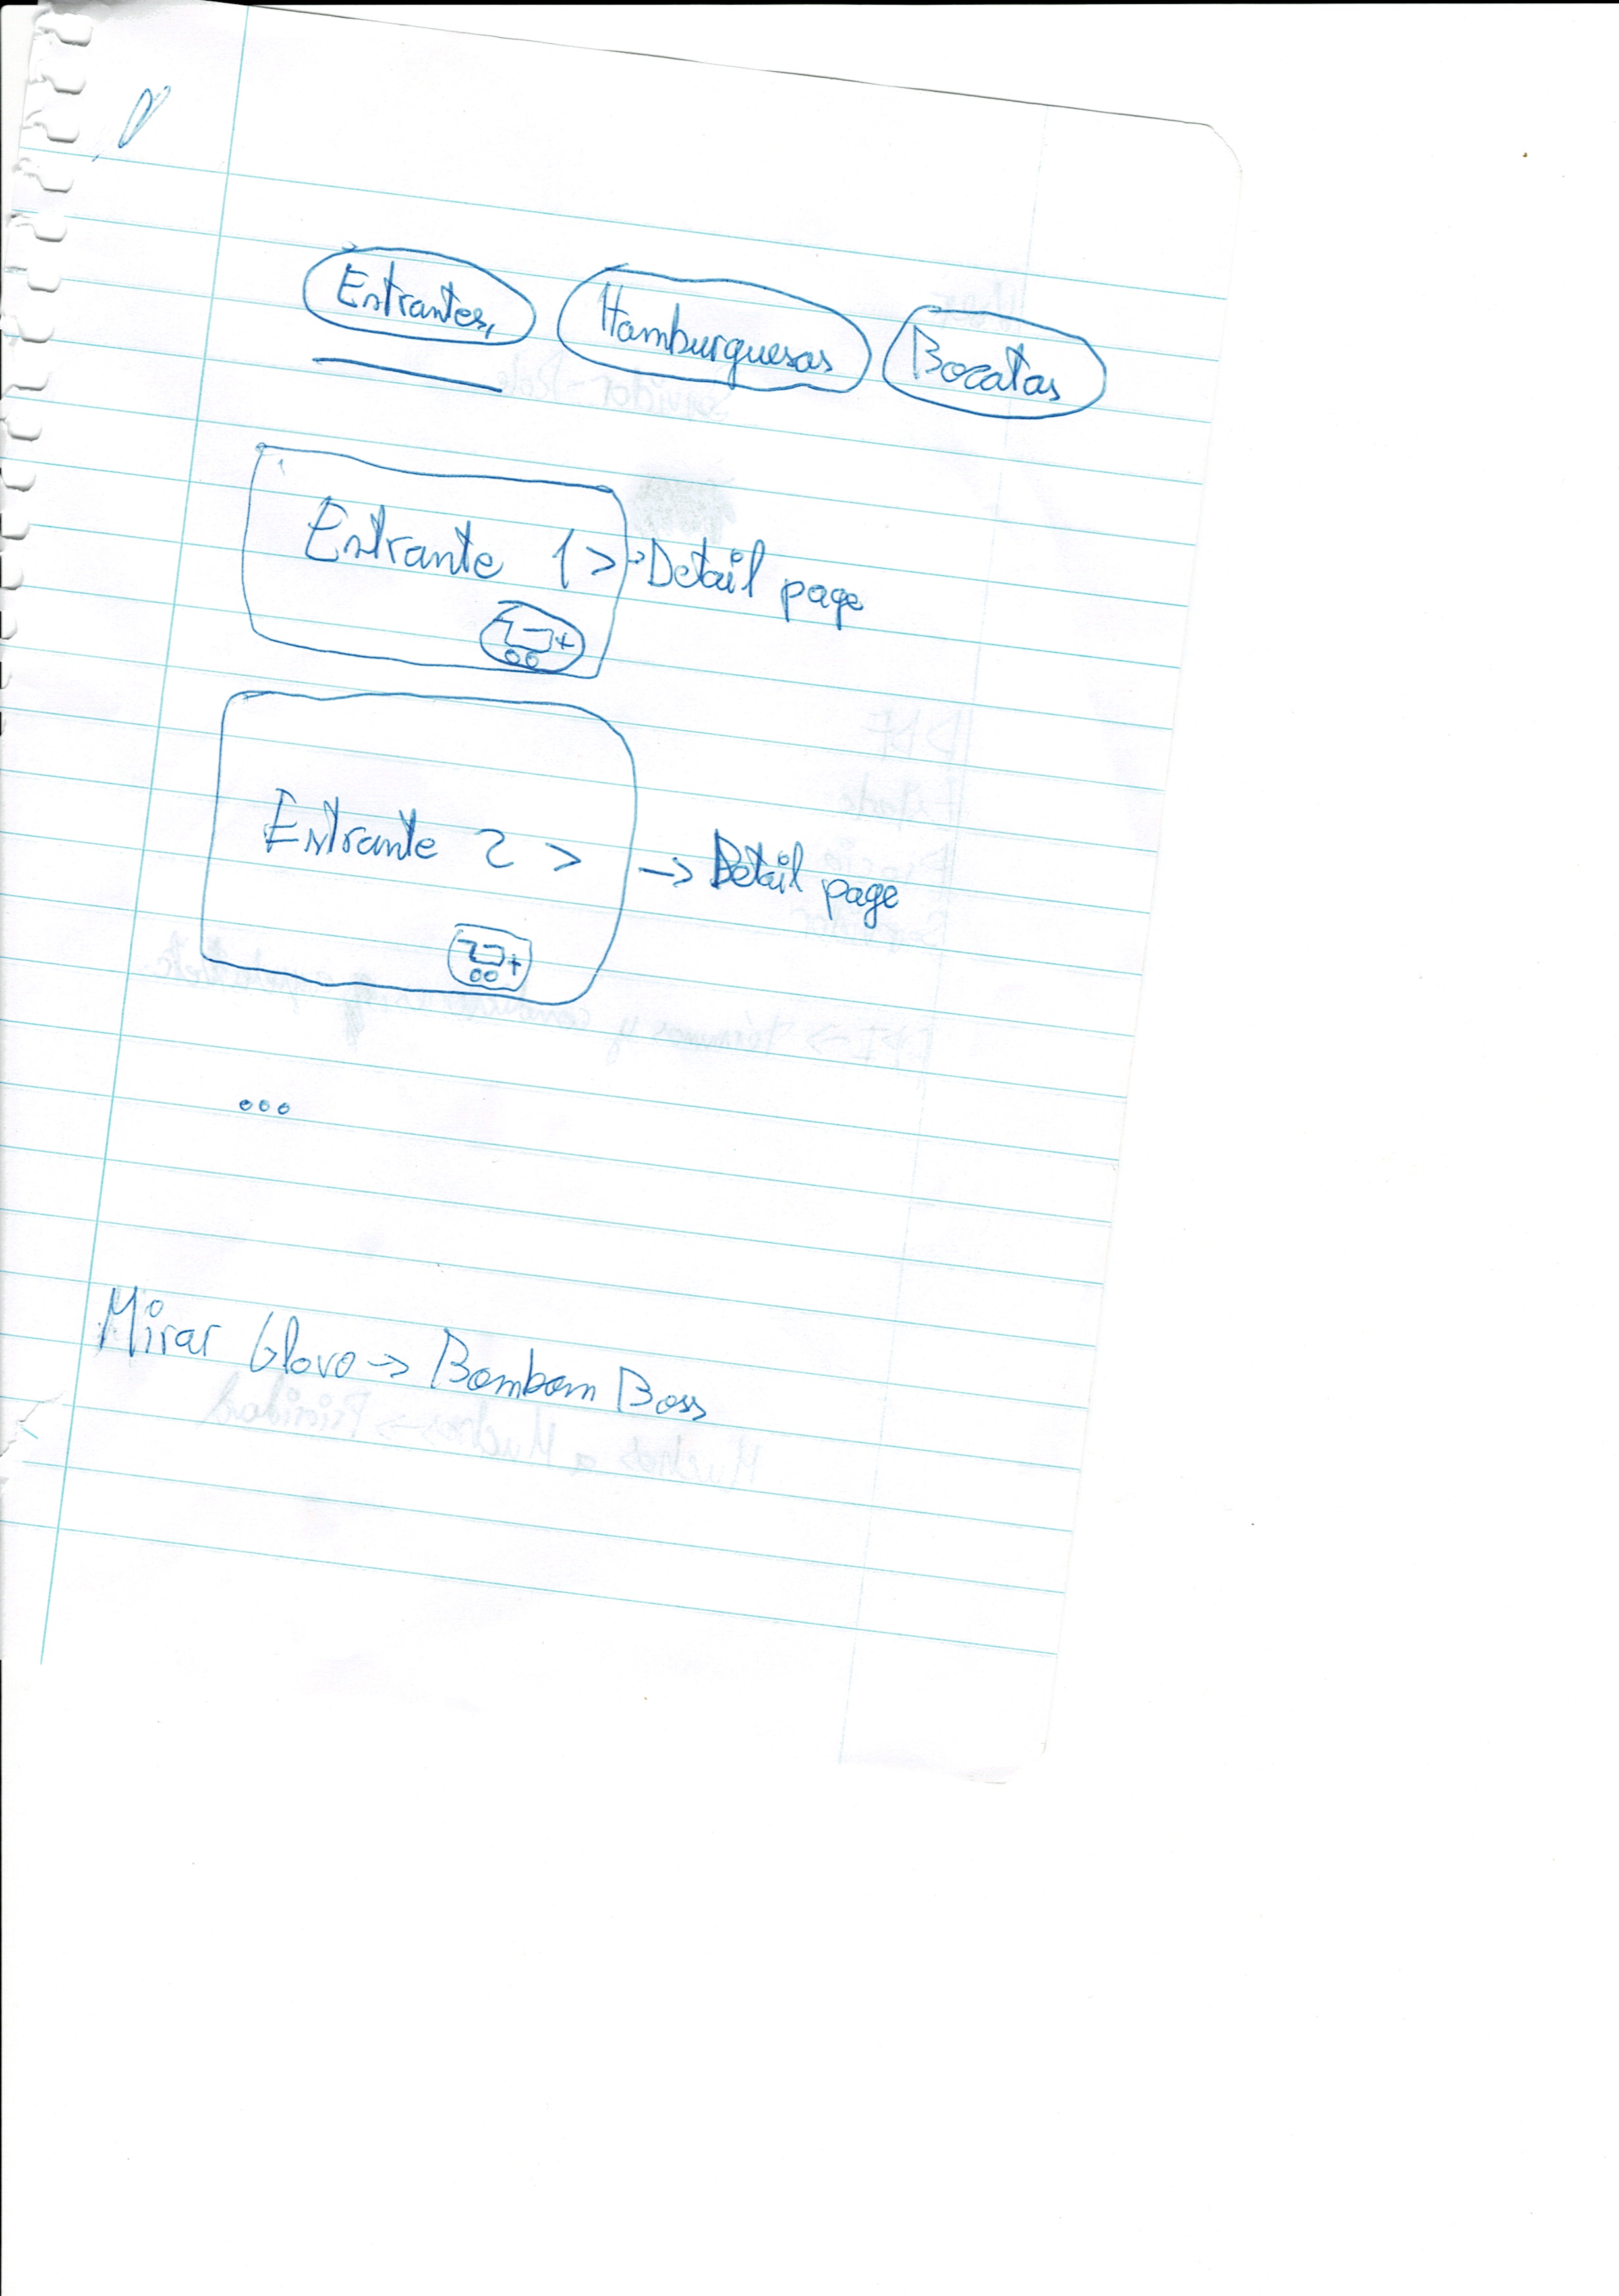 Entrantes, Hamburguesas Bocatas
Entrante 1 > → Detail page
+
Entrante 2 > → Detail page
+
...
Mirar Glovo → Bombom Boss